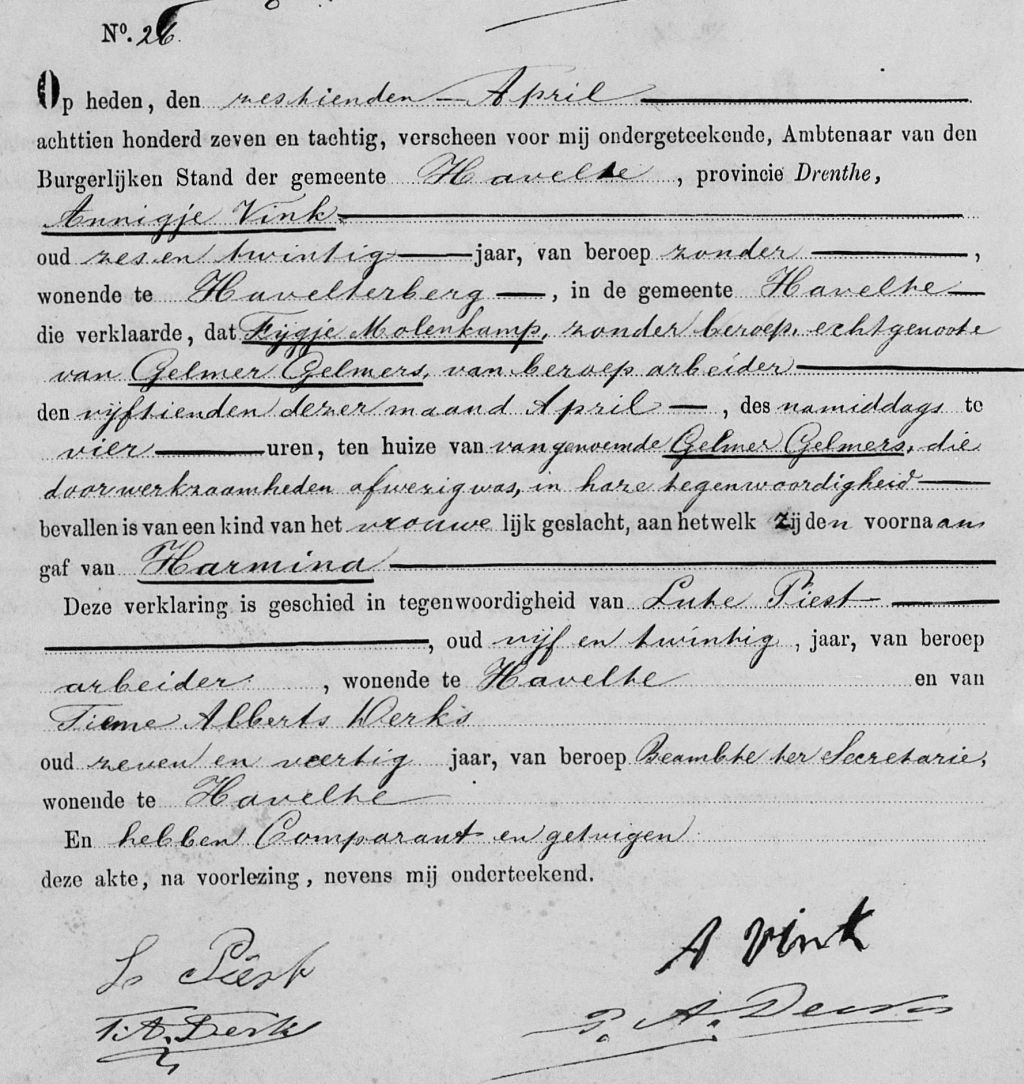 No. 26.
Op heden, den zestienden April
achttien honderd zeven en tachtig, verscheen voor mij ondergeteekende, Ambtenaar van den
Burgerlijken Stand der gemeente Havelte, provincie Drenthe,
Annigje Vink
oud zes en twintig jaar, van beroep zonder,
wonende te Havelterberg, in de gemeente Havelte
die verklaarde, dat Fijgje Molenkamp, zonder beroep, echtgenoote
van Gelmer Gelmers, van beroep arbeider
den vijftienden dezer maand April, des namiddags te
vier uren, ten huize van van genoemde Gelmer Gelmers, die
door werkzaamheden afwezig was, in hare tegenwoordigheid
bevallen is van een kind van het vrouwelijk geslacht, aan hetwelk zij den voornaam
gaf van Harmina
Deze verklaring is geschied in tegenwoordigheid van Lute Piest
, oud vijf en twintig, jaar, van beroep
arbeider, wonende te Havelte en van
Tieme Alberts Derks
oud zeven en veertig jaar, van beroep Beambte ter Secretarie,
wonende te Havelte
En hebben Comparant en getuigen
deze akte, na voorlezing, nevens mij onderteekend.
A Vink
L Piest
T. A. Derks